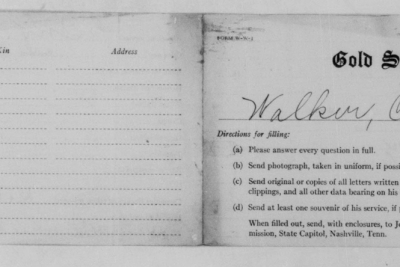 Kin Address
Gold S
Walker, C
Directions for filling:
(a) Please answer every question in full.
(b) Send photograph, taken in uniform, if possi
(c) Send original or copies of all letters written
clippings, and all other data bearing on his
(d) Send at least one souvenir of his service, if
When filled out, send, with enclosures, to J
mission, State Capitol, Nashville, Tenn.